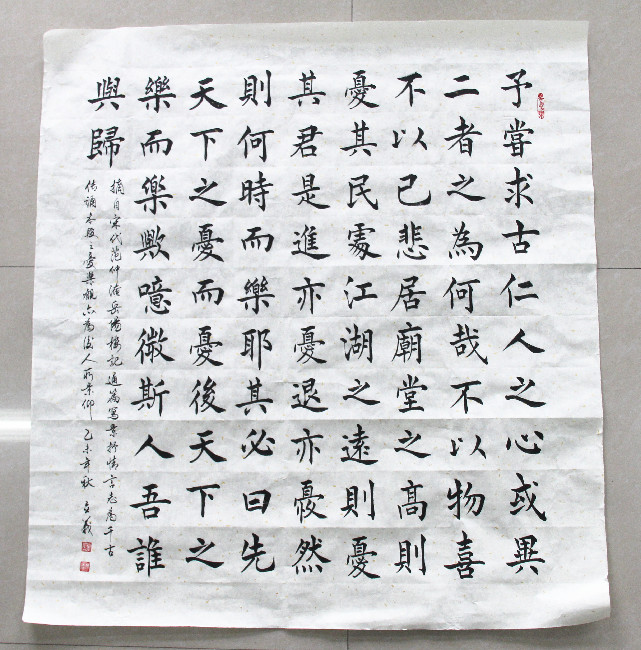 予嘗求古仁人之心或異
二者之為何哉不以物喜
不以己悲居廟堂之高則
憂其民處江湖之遠則憂
其君是進亦憂退亦憂然
則何時而樂耶其必曰先
天下之憂而憂後天下之
樂而樂歟噫微斯人吾誰
與歸
摘自宋代范仲淹岳陽樓記通篇寫景抒情言志為千古
傳誦本段之憂樂觀亦為後人所景仰 乙未年秋